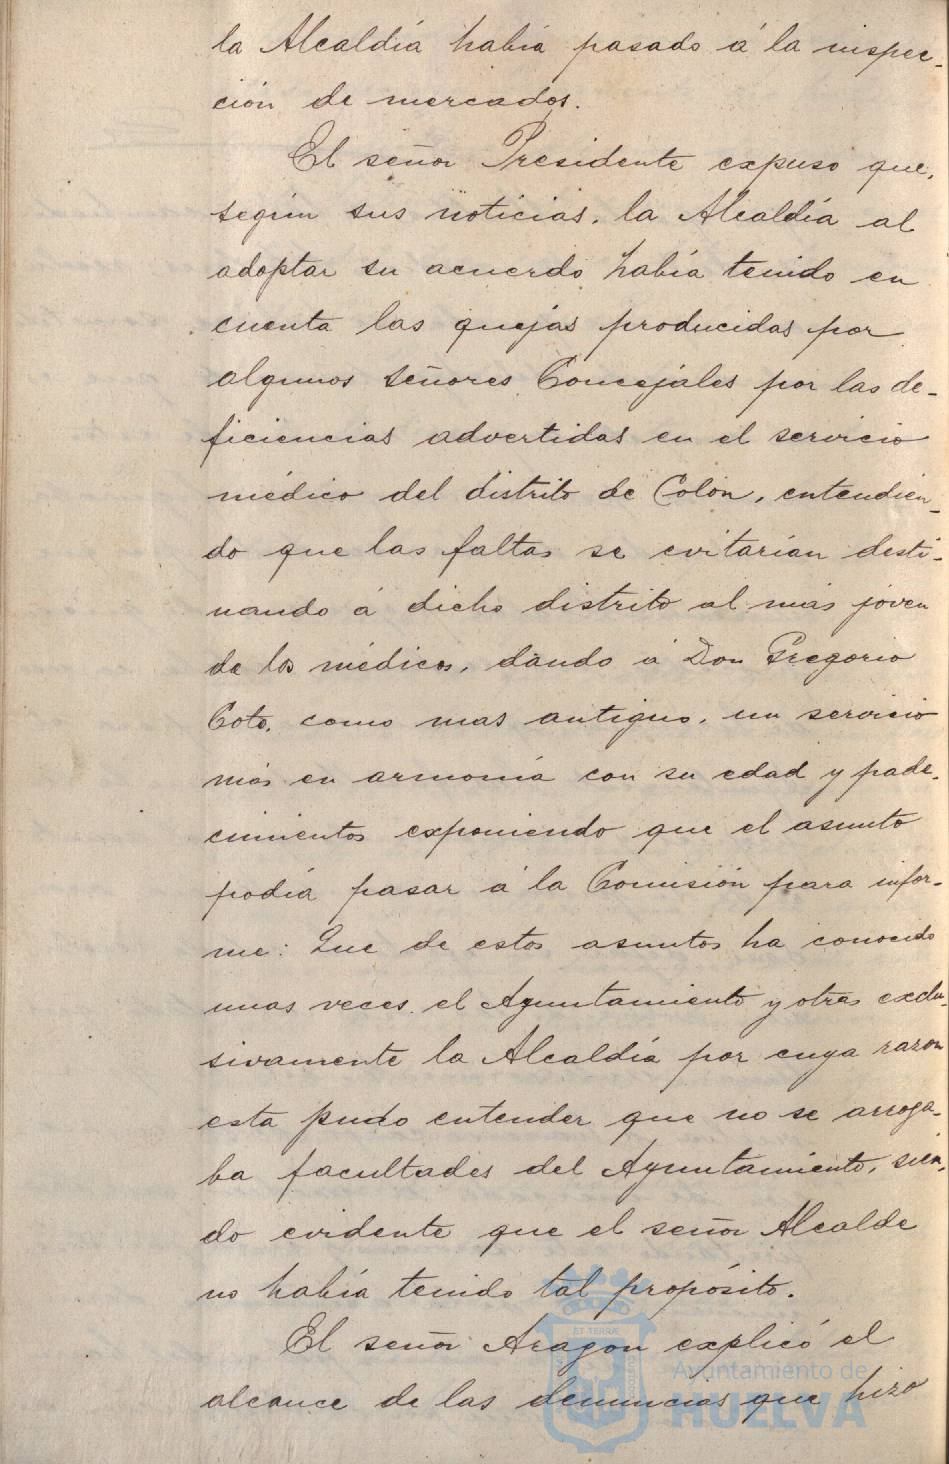 la Alcaldía había pasado á la inspec-
ción de mercados.
El señor Presidente expuso que,
según sus noticias, la Alcaldía al
adoptar su acuerdo había tenido en
cuenta las quejas producidas por
algunos señores Concejales por las de-
ficiencias advertidas en el servicio
médico del distrito de Colón, entendien-
do que las faltas se evitarían desti-
nando á dicho distrito al más jóven
de los médicos, dando á Don Gregorio
Coto, como mas antiguo, un servicio
más en armonía con su edad y pade-
cimientos exponiendo que el asunto
podía pasar á la Comisión para infor-
me: Que de estos asuntos ha conocido
unas veces el Ayuntamiento y otras exclu-
sivamente la Alcaldía por cuya razon
esta pudo entender que no se arroga-
ba facultades del Ayuntamiento, sien-
do evidente que el señor Alcalde
no había tenido tal propósito.
El señor Aragon explicó el
alcance de las denuncias que hizo
ET TERRÆ
Ayuntamiento de
HUELVA